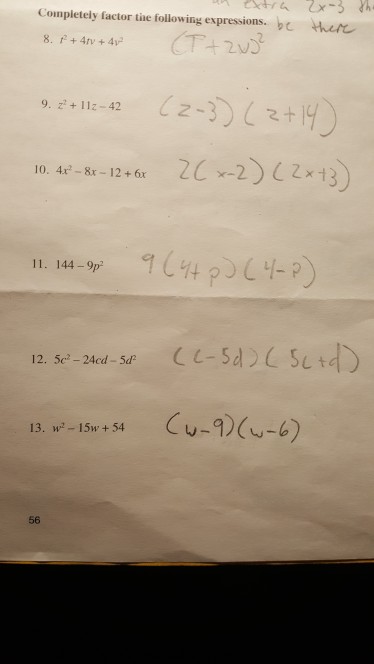 an extra 2x-3 sh
Completely factor the following expressions. be there
8. t² + 4tv + 4v² (T+2v)²
9. z² + 11z – 42 (z-3)(z+14)
10. 4x² – 8x – 12 + 6x 2(x-2)(2x+3)
11. 144 – 9p² 9(4+p)(4-p)
12. 5c² – 24cd – 5d² (c-5d)(5c+d)
13. w² – 15w + 54 (w-9)(w-6)
56